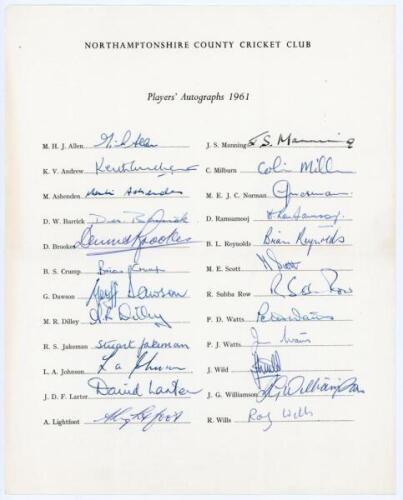 NORTHAMPTONSHIRE COUNTY CRICKET CLUB
Players' Autographs 1961
M. H. J. Allen
K. V. Andrew Keith Andrew
M. Ashenden
D. W. Barrick
D. Brookes Dennis Brookes
B. S. Crump Brian Crump
G. Dawson Geoff Dawson
M. R. Dilley
R. S. Jakeman Stuart Jakeman
L. A. Johnson L A Johnson
J. D. F. Larter David Larter
A. Lightfoot
J. S. Manning J. S. Manning
C. Milburn Colin Milburn
M. E. J. C. Norman
D. Ramsamooj
B. L. Reynolds Brian Reynolds
M. E. Scott M Scott
R. Subba Row R Subba Row
P. D. Watts Peter Watts
P. J. Watts Jim Watts
J. Wild
J. G. Williamson J G Williamson
R. Wills Roy Wills